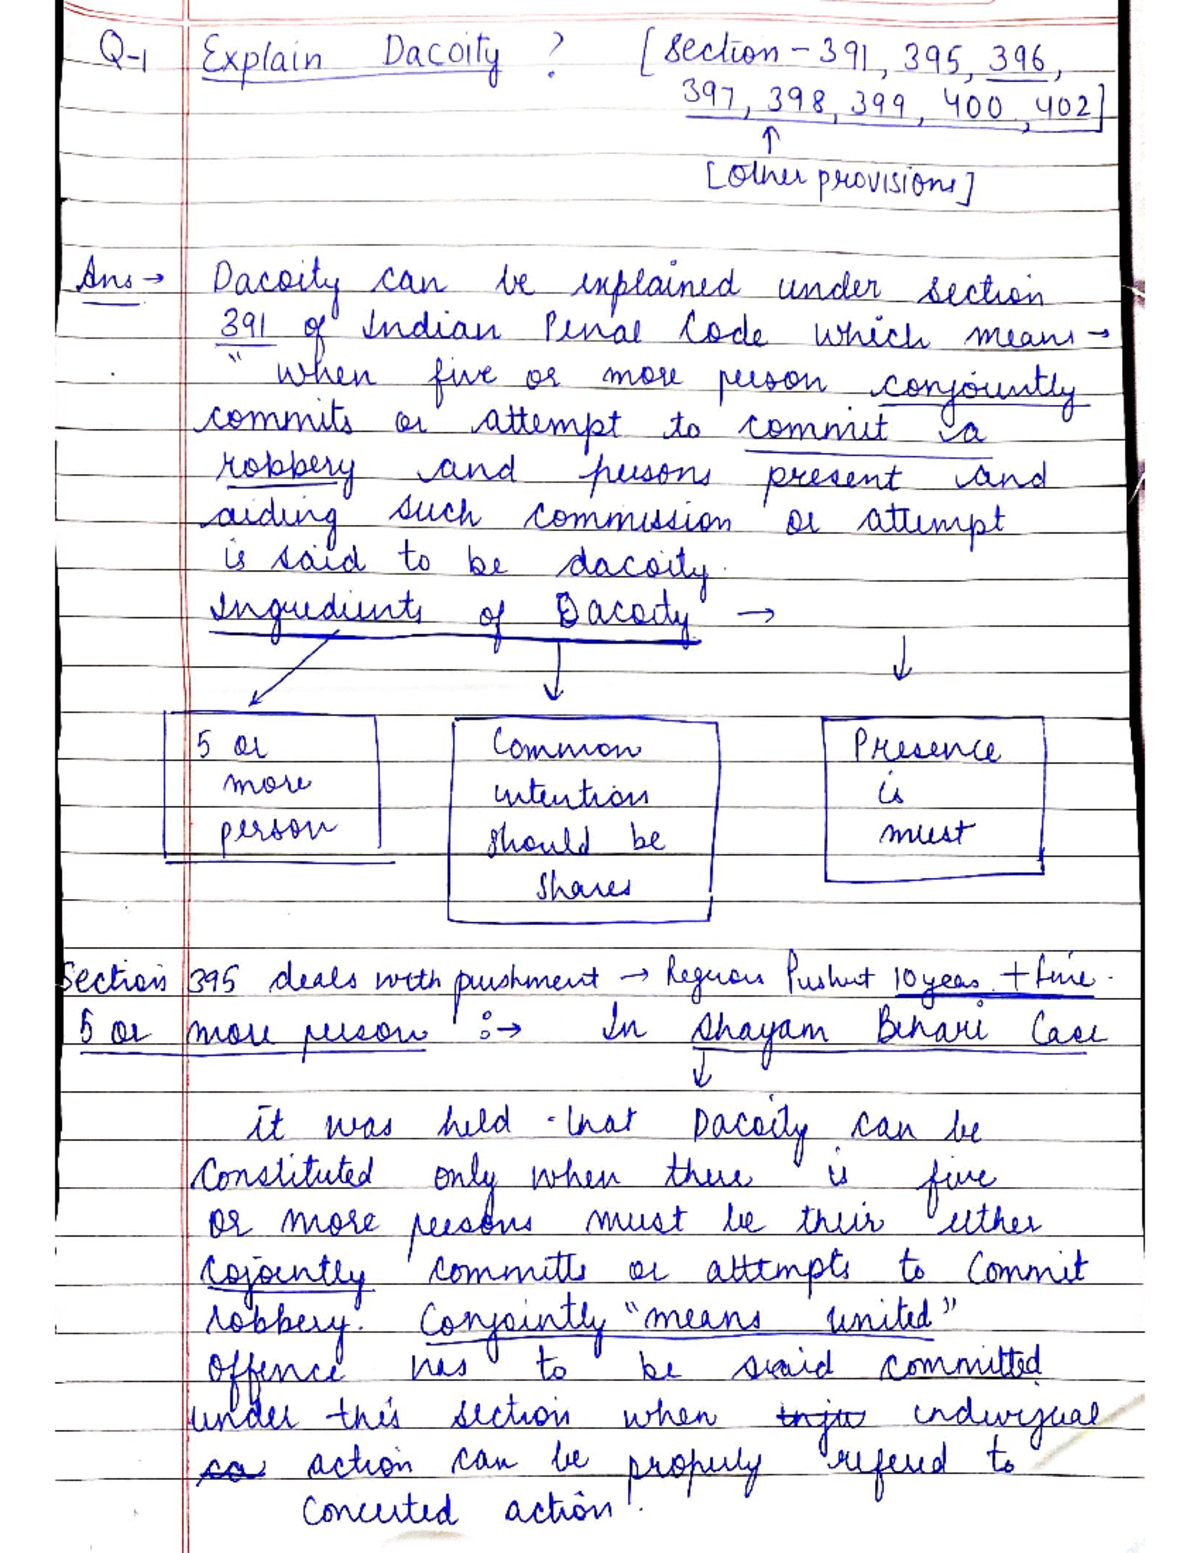 Q-1 Explain Dacoity ? [Section - 391, 395, 396,
397, 398, 399, 400, 402]
↑
[other provisions]
Ans → Dacoity can be explained under section
391 of Indian Penal Code which means →
" when five or more person conjountly
commits or attempt to commit a
robbery and persons present and
aiding such commission or attempt
is said to be dacoity.
Ingredients of Dacoity →
5 or
more
person
Common
intention
should be
shares
Presence
is
must
Section 395 deals with punshment → Regrous 10 years + fine.
5 or more person :→ In Shayam Behari Case
↓
it was held that Dacoity can be
Constituted only when there is five
or more persons must be their either
cojointly committs or attempts to Commit
robbery. Conjointly "means united"
offence has to be said committed
under this section when individual
action can be properly refered to
Concerted action.